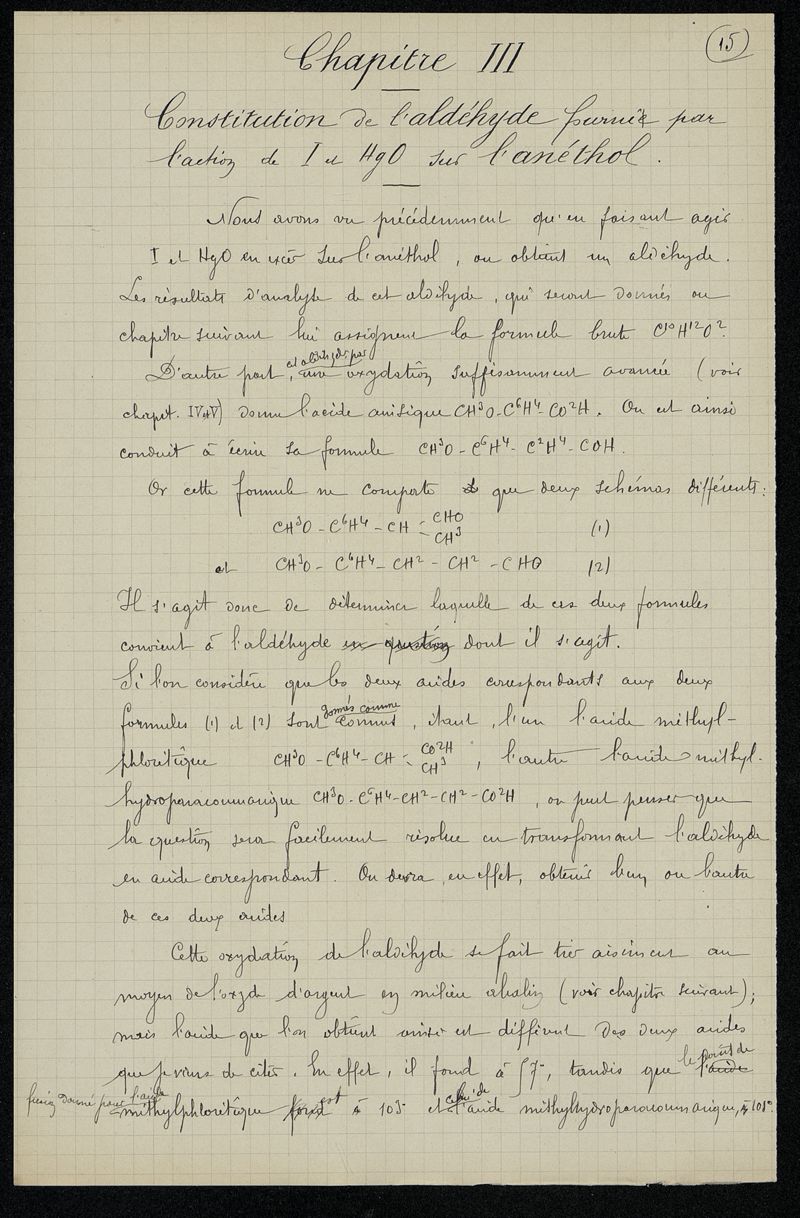 (15)
Chapitre III
Constitution de l'aldéhyde fournie par
l'action de I et HgO sur l'anéthol.
Nous avons vu précédemment qu'en faisant agir
I et HgO en excès sur l'anéthol, on obtient un aldéhyde.
Les résultats d'analyse de cet aldéhyde, qui seront donnés au
chapitre suivant lui assignent la formule brute C¹⁰H¹²O².
cet aldéhyde par
D'autre part, une oxydation suffisamment avancée (voir
chapit. IV et V) donne l'acide anisique CH³O-C⁶H⁴-CO²H. On est ainsi
conduit à écrire sa formule CH³O-C⁶H⁴-C²H⁴-COH.
Or cette formule ne comporte que deux schémas différents:
CH³O-C⁶H⁴-CH CHO CH³ (1)
et CH³O-C⁶H⁴-CH²-CH²-CHO (2)
Il s'agit donc de déterminer laquelle de ces deux formules
convient à l'aldéhyde en question dont il s'agit.
Si l'on considère que les deux acides correspondants aux deux
donnés comme
formules (1) et (2) sont connus, étant, l'un l'acide méthyl-
phlorétique CH³O-C⁶H⁴-CH CO²H CH³, l'autre l'acide méthyl.
hydroparacoumarique CH³O-C⁶H⁴-CH²-CH²-CO²H, on peut penser que
la question sera facilement résolue en transformant l'aldéhyde
en acide correspondant. On devra, en effet, obtenir l'un ou l'autre
de ces deux acides
Cette oxydation de l'aldéhyde se fait très aisément au
moyen de l'oxyde d'argent en milieu alcalin (voir chapitre suivant);
mais l'acide que l'on obtient ainsi est différent des deux acides
que je viens de citer. En effet, il fond à 57°, tandis que le point de l'acide
fusion donné pour l'acide
méthylphlorétique fond est à 103° et celui de l'acide méthylhydroparacoumarique, à 101°.